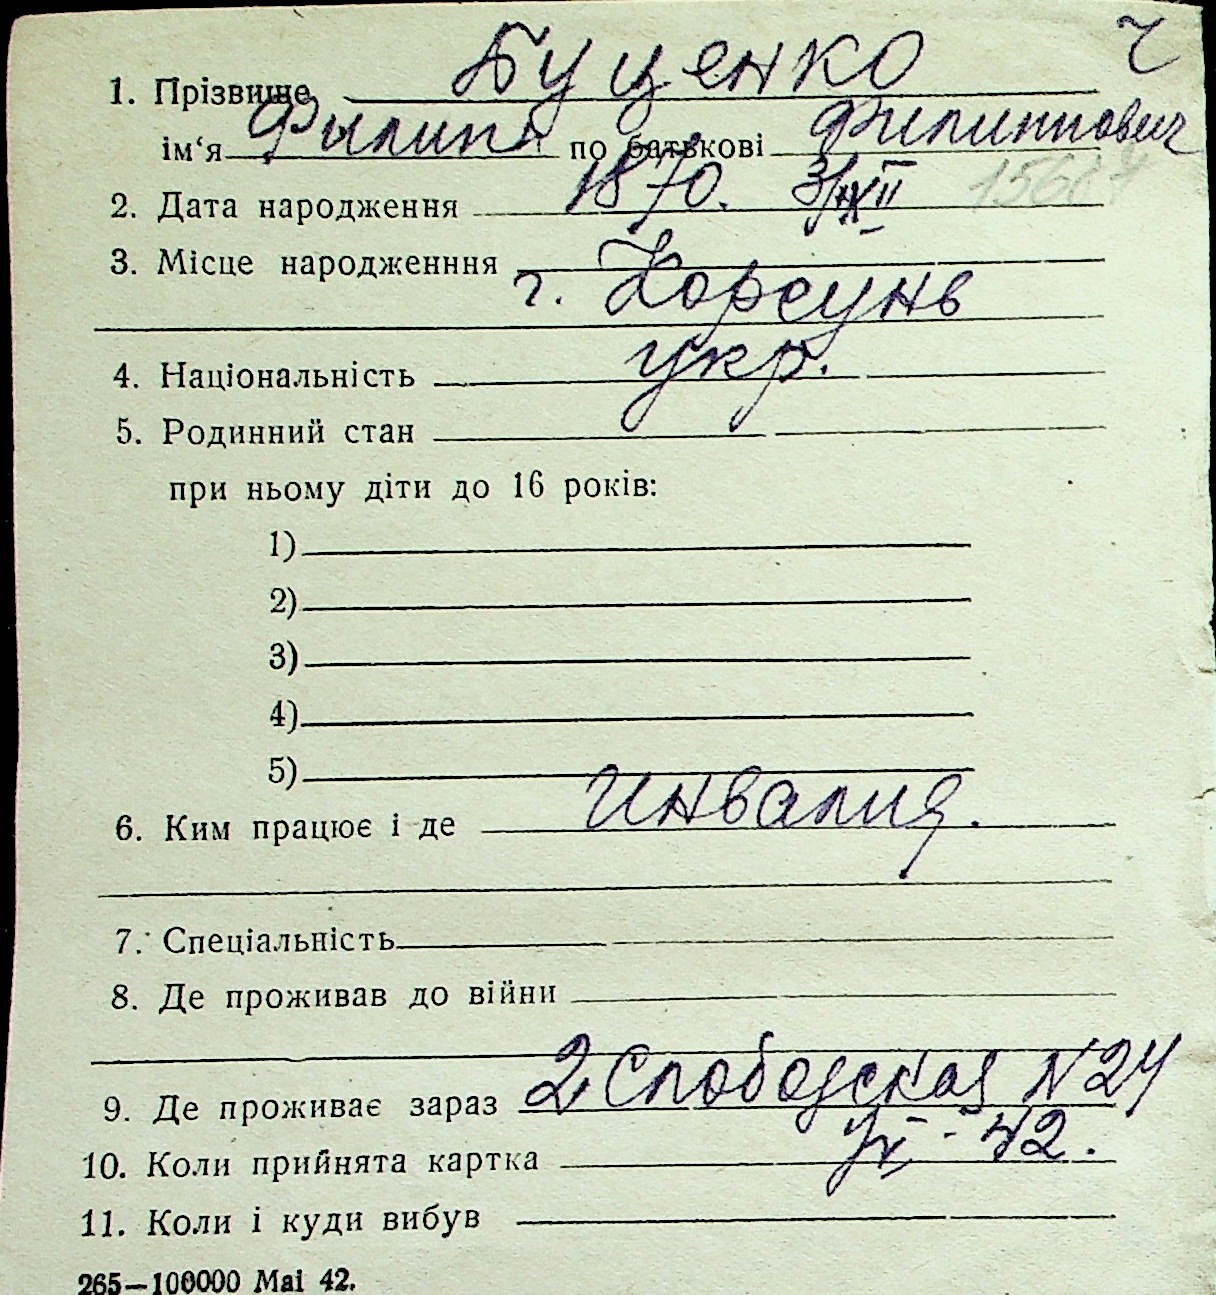 ч
1. Прізвище Буценко
ім‘я Филип по батькові Филиппович
2. Дата народження 1870. 3/XII
3. Місце народженння
г. Корсунь
4. Національність укр.
5. Родинний стан
при ньому діти до 16 років:
1)
2)
3)
4)
5)
6. Ким працює і де Инвалид.
7. Спеціальність
8. Де проживав до війни
9. Де проживає зараз 2 Слободская N 24
10. Коли прийнята картка 42.
11. Коли і куди вибув
265—100000 Mai 42.